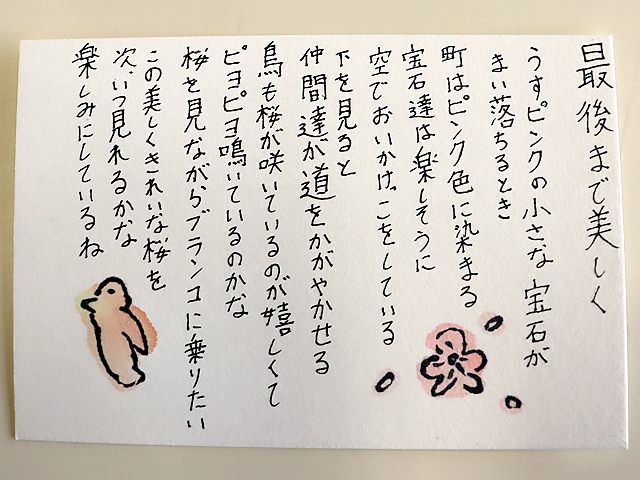 最後まで美しく
うすピンクの小さな宝石が
まい落ちるとき
町はピンク色に染まる
宝石達は楽しそうに
空でおいかけっこをしている
下を見ると
仲間達が道をかがやかせる
鳥も桜が咲いているのが嬉しくて
ピヨピヨ鳴いているのかな
桜を見ながらブランコに乗りたい
この美しくきれいな桜を
次、いつ見れるかな
楽しみにしているね